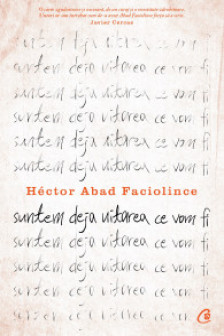 Javier Cercas
suntem deja uitarea ce vom fi
suntem deja uitarea ce vom fi
suntem deja uitarea ce vom fi
suntem deja uitarea ce vom fi
suntem deja uitarea ce vom fi
suntem deja uitarea ce vom fi
Héctor Abad Faciolince
suntem deja uitarea ce vom fi
suntem deja uitarea ce vom fi
suntem deja uitarea ce vom fi
suntem deja uitarea ce vom fi
suntem deja uitarea ce vom fi